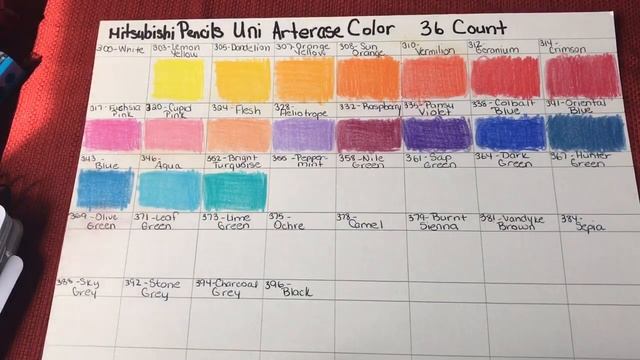 Mitsubishi Pencils Uni Arterase Color 36 Count
300-White 303-Lemon Yellow 305-Dandelion 307-Orange Yellow 308-Sun Orange 310-Vermilion 312-Geranium 314-Crimson
317-Fuchsia Pink 320-Cupid Pink 324-Flesh 328-Heliotrope 332-Raspbarry 335-Pansy Violet 338-Colbalt Blue 341-Oriental Blue
343-Blue 346-Aqua 352-Bright Turquoise 355-Peppermint 358-Nile Green 361-Sap Green 364-Dark Green 367-Hunter Green
369-Olive Green 371-Leaf Green 373-Lime Green 375-Ochre 378-Camel 379-Burnt Sienna 381-Vandyke Brown 384-Sepia
388-Sky Grey 392-Stone Grey 394-Charcoal Grey 396-Black